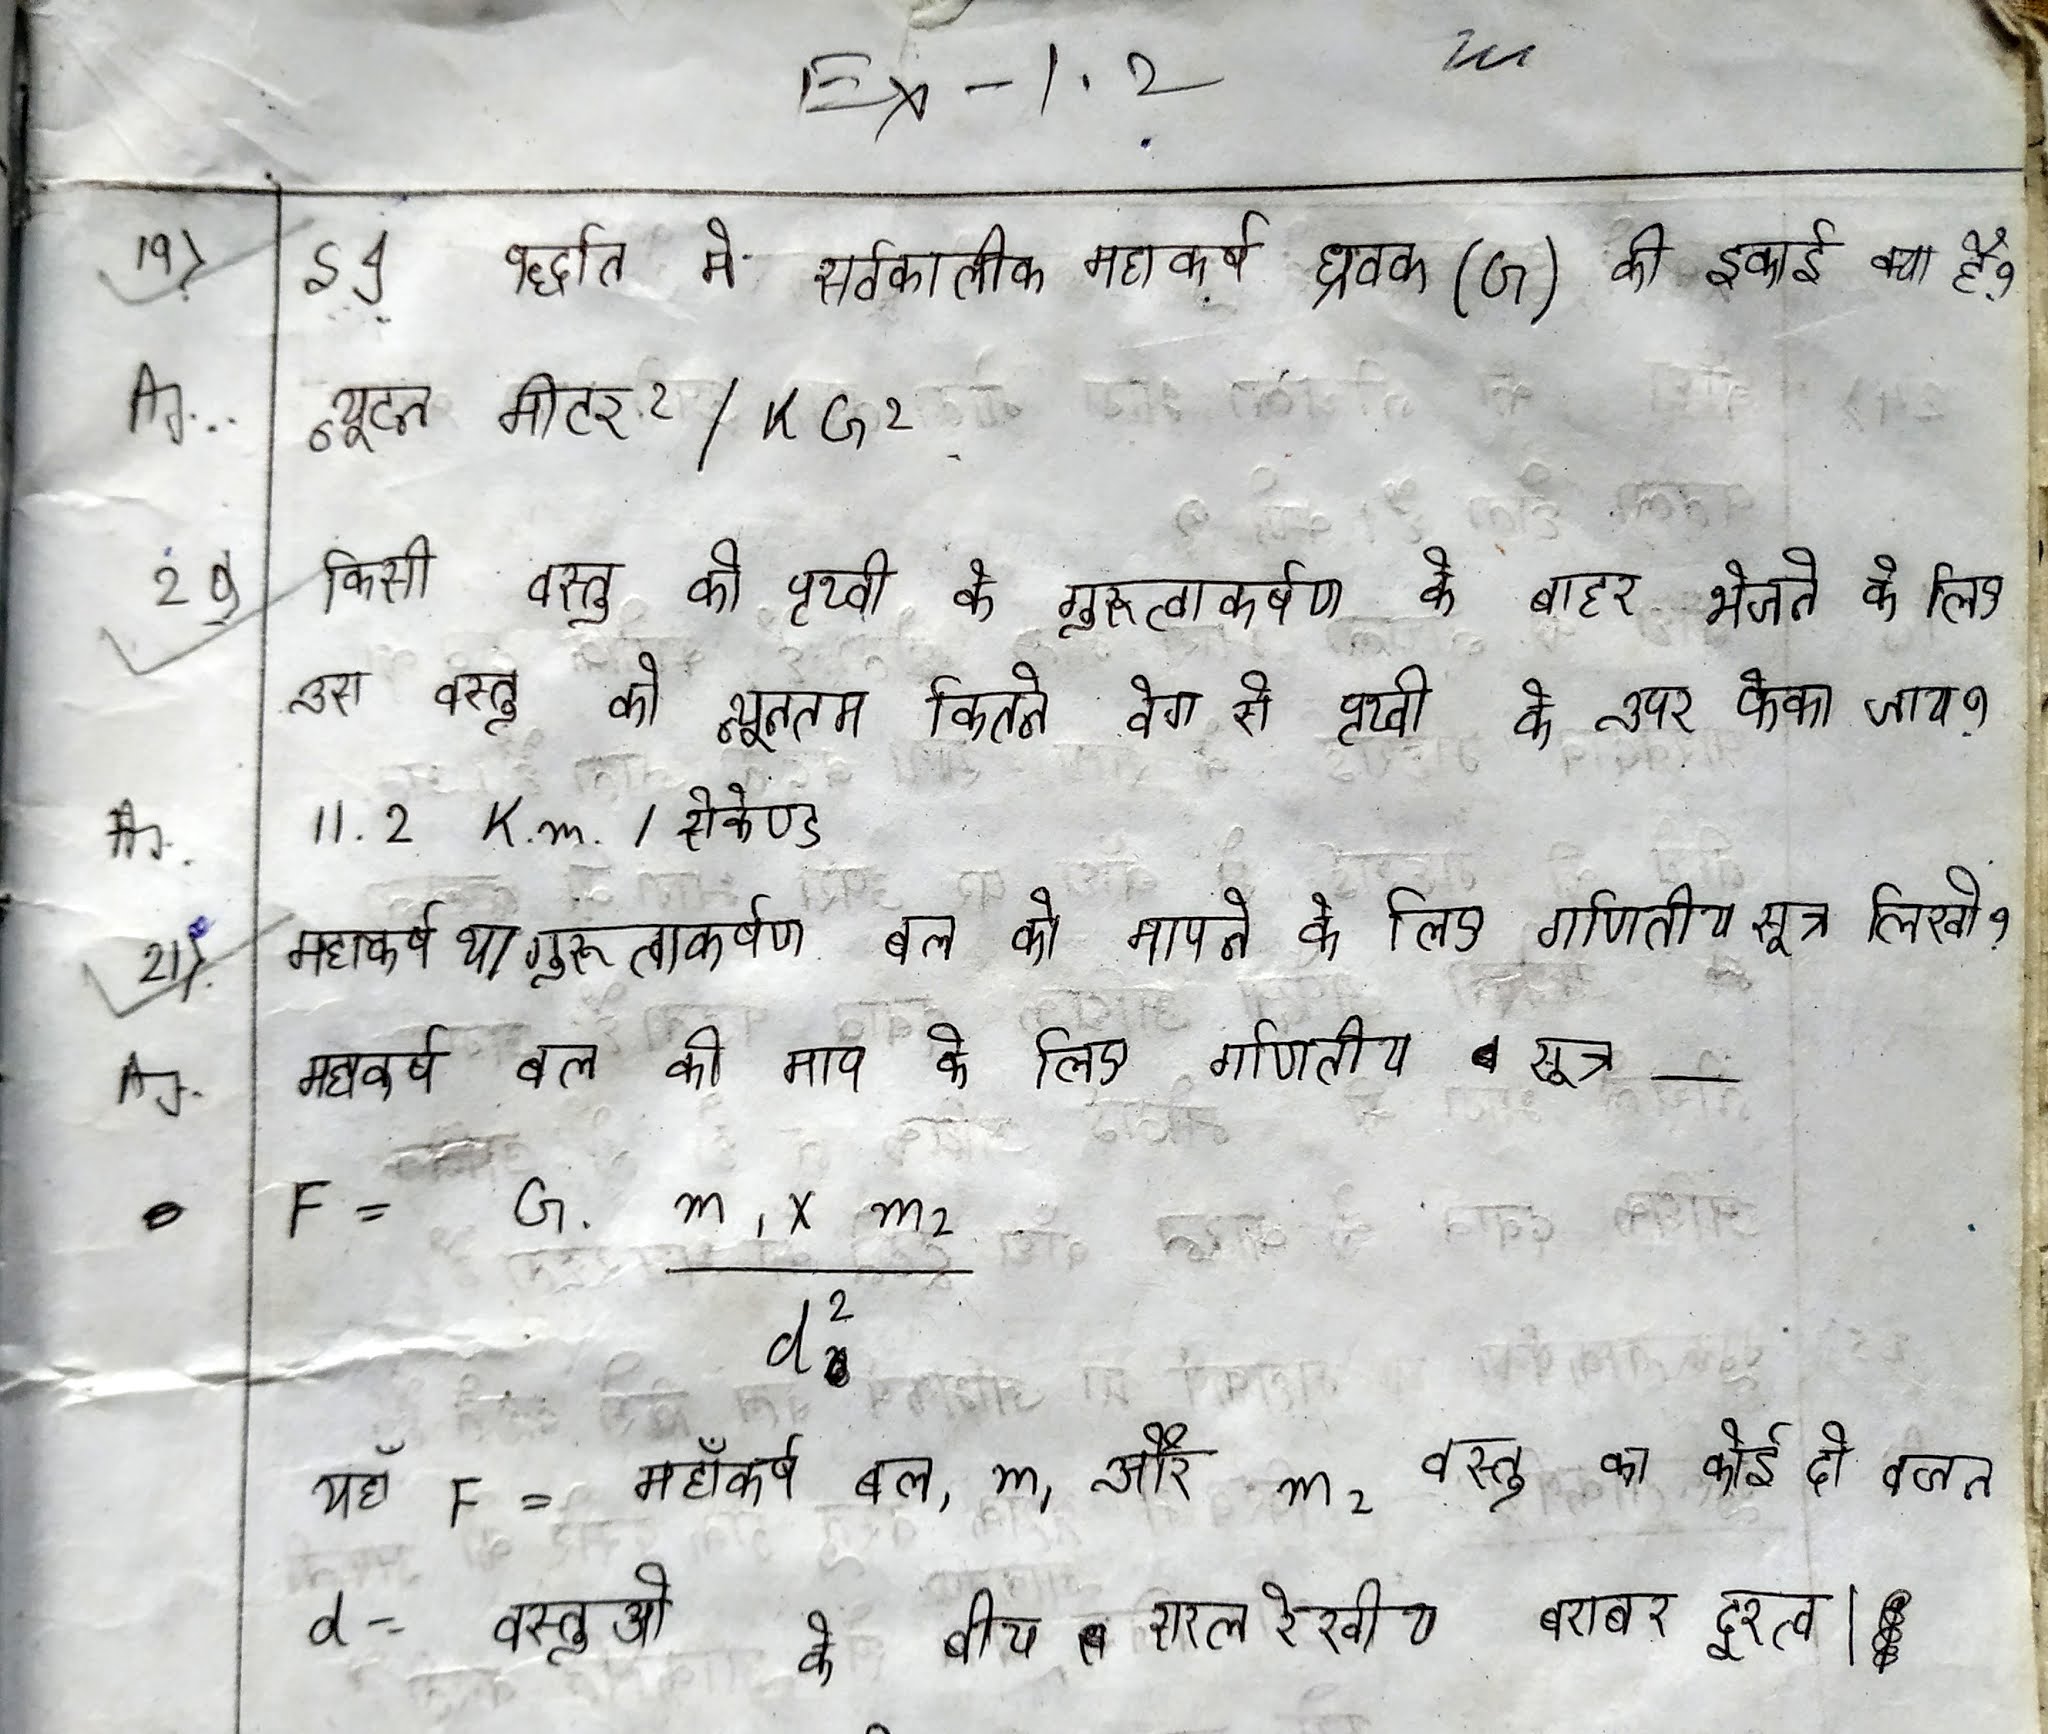 Ex - 1.2
19) SI पद्धति मे सर्वकालीक महाकर्ष ध्रुवक (G) की इकाई क्या है?
A. न्यूटन मीटर² / KG²
20) किसी वस्तु को पृथ्वी के गुरूत्वाकर्षण के बाहर भेजने के लिए
उस वस्तु को न्यूनतम कितने वेग से पृथ्वी के उपर फेका जाय?
A. 11.2 K.m. / सेकेण्ड
21) महाकर्ष या गुरूत्वाकर्षण बल को मापने के लिए गणितीय सूत्र लिखो?
A. महाकर्ष बल की माप के लिए गणितीय सूत्र —
F = G. m₁ x m₂
d²
यहाँ F = महाँकर्ष बल, m₁ और m₂ वस्तु का कोई दो वजन
d = वस्तुओ के बीच सरल रेखीय बराबर दूरत्व |